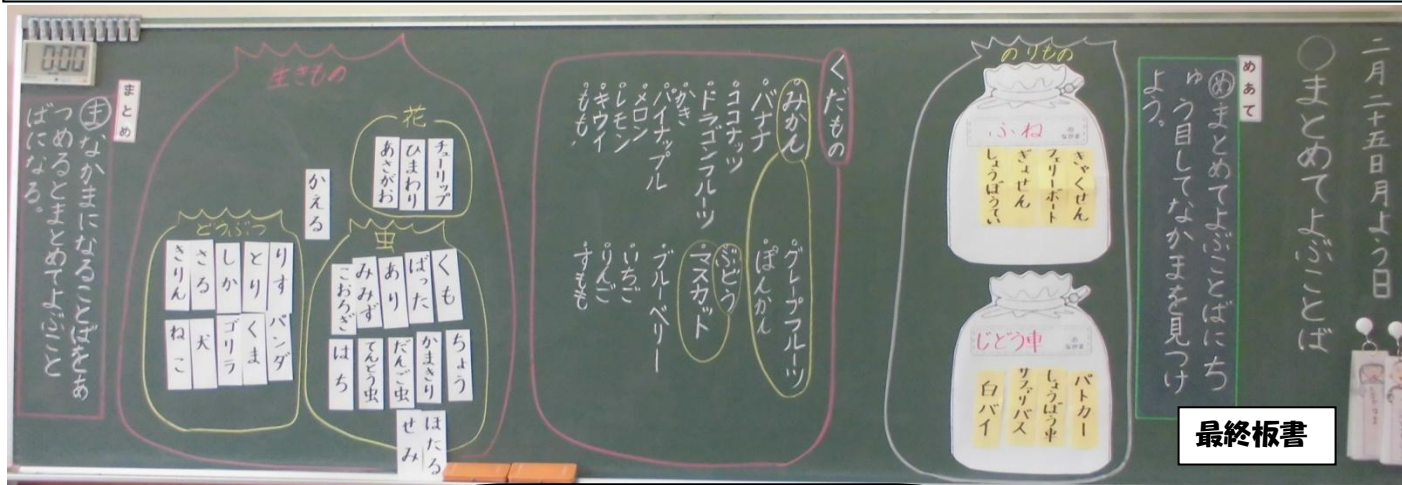 二月二十五日月よう日
○まとめてよぶことば
めあて
めまとめてよぶことばにち
ゅう目してなかまを見つけ
よう。
のりもの
ふね
なかま
きゃくせん
フェリーボート
ぎょせん
しょうぼうてい
じどう車
なかま
パトカー
しょうぼう車
サファリバス
白バイ
くだもの
みかん
バナナ
ココナッツ
ドラゴンフルーツ
かき
パイナップル
メロン
レモン
キウイ
もも
グレープフルーツ
ぽんかん
ぶどう
マスカット
ブルーベリー
いちご
りんご
すもも
生きもの
花
チューリップ
ひまわり
あさがお
かえる
虫
くも
ばった
あり
みみず
こおろぎ
ちょう
かまきり
だんご虫
てんとう虫
はち
ほたる
せみ
どうぶつ
りす
とり
しか
さる
きりん
パンダ
くま
ゴリラ
犬
ねこ
まとめ
まなかまになることばをあ
つめるとまとめてよぶこと
ばになる。
0:00
最終板書